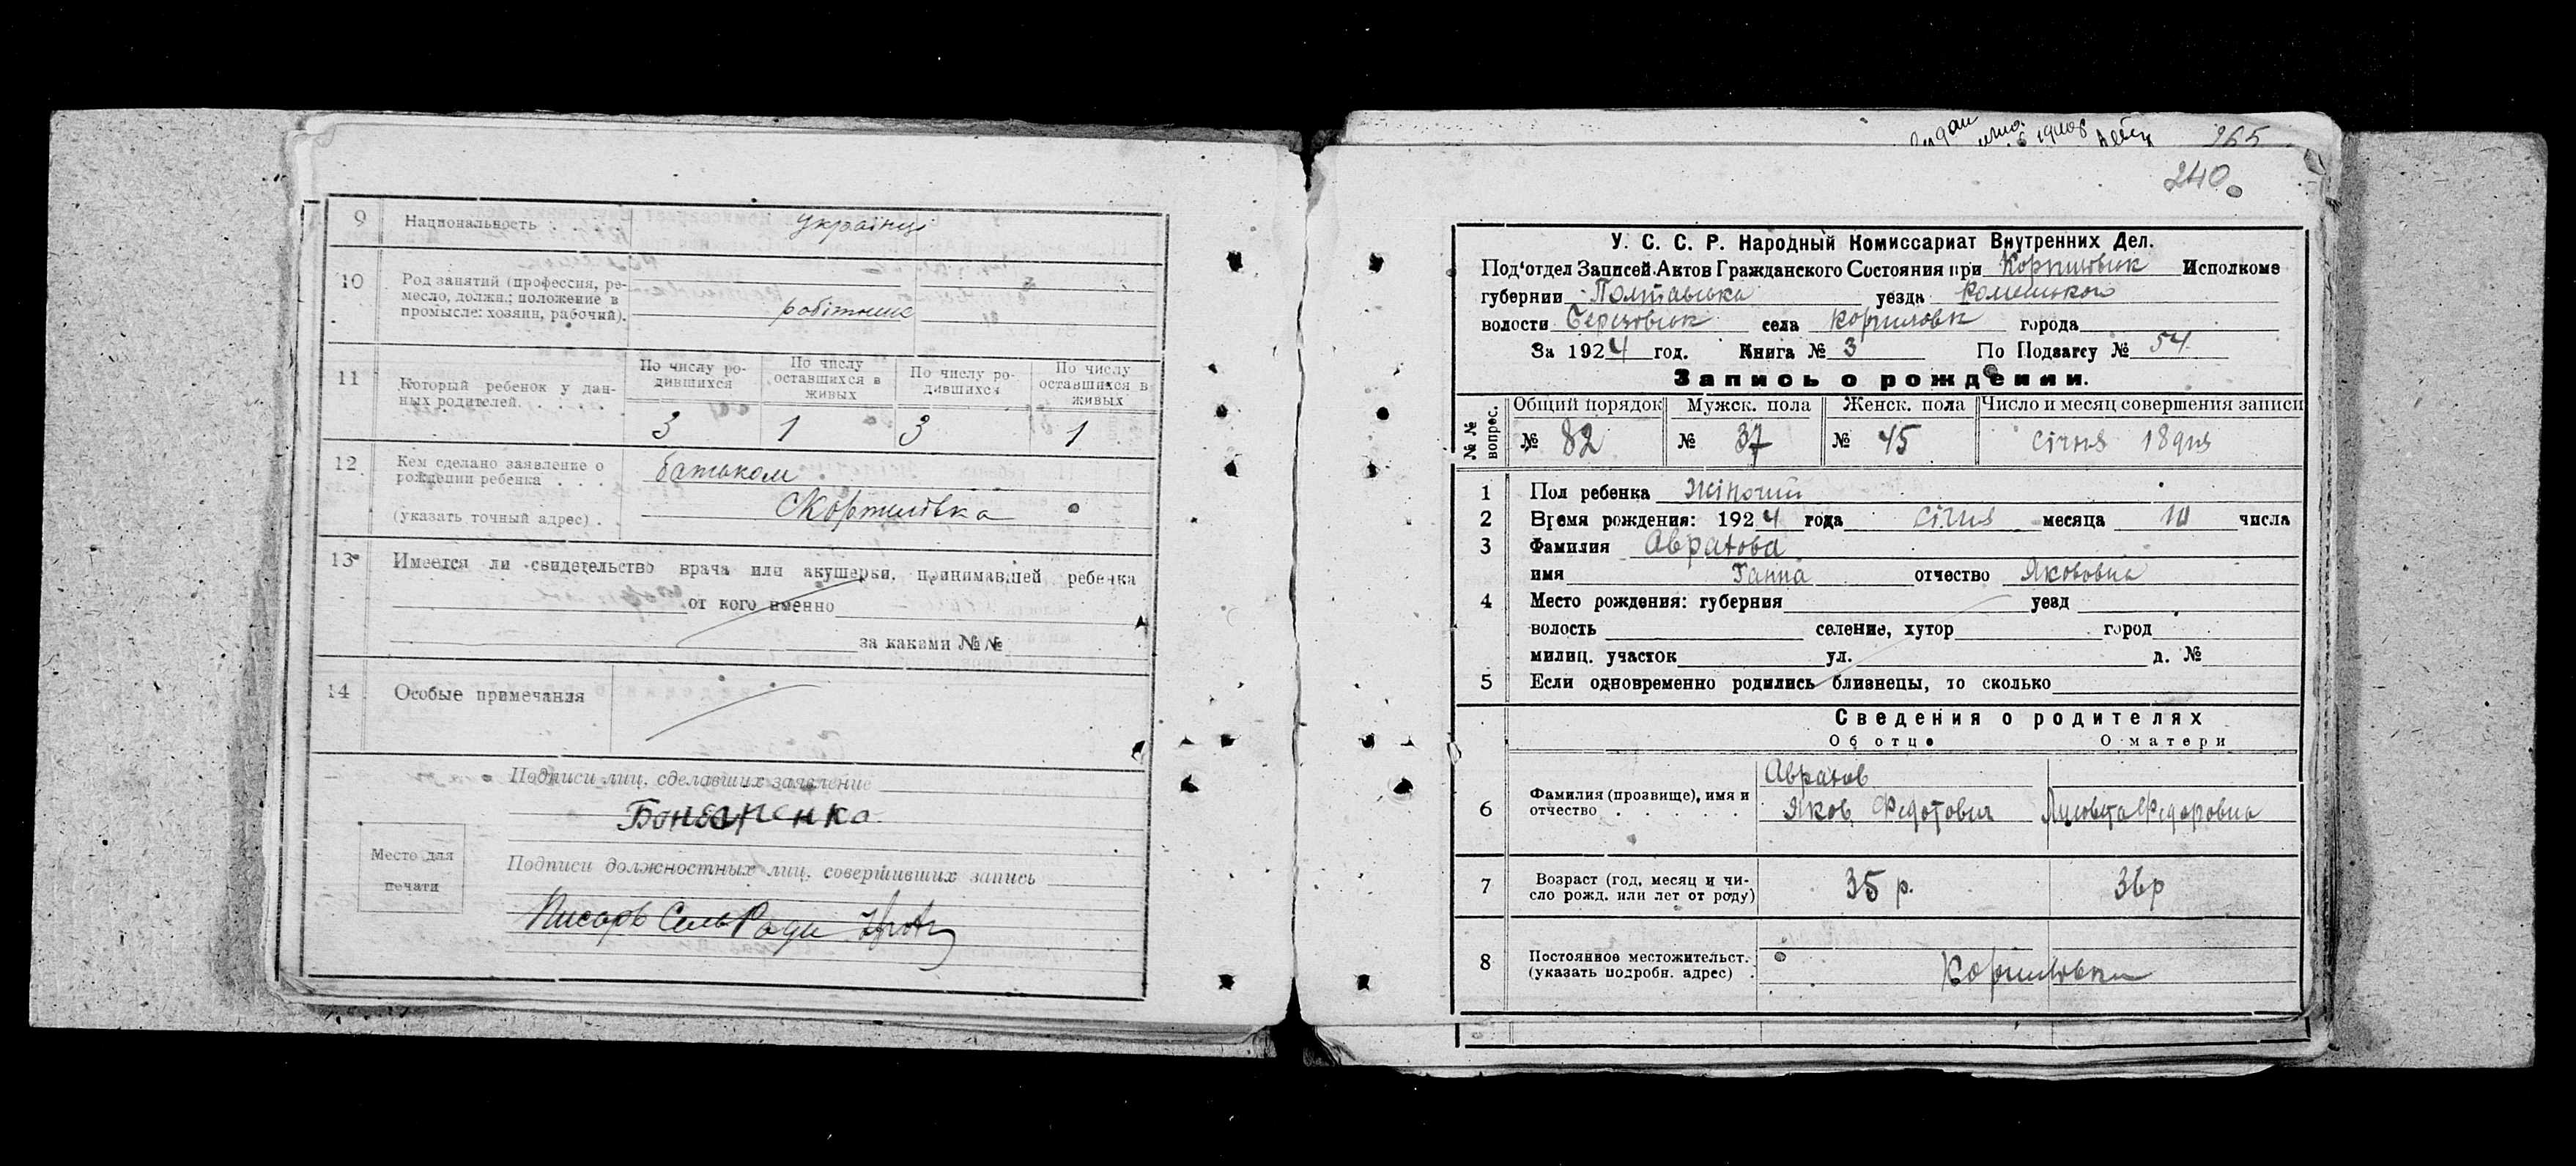 9 Национальность . . українці
10 Род занятий (профессия, ре-
месло, должн.; положение в
промысле: хозяин, рабочий). робітник
11 Который ребенок у дан-
ных родителей. . . . .
По числу ро-
дившихся
По числу
оставшихся в
живых
По числу ро-
дившихся
По числу
оставшихся в
живых
3 1 3 1
12 Кем сделано заявление о
рождении ребенка . . . батьком
(указать точный адрес) . С Коржилівка
13 Имеется ли свидетельство врача или акушерки, принимавшей ребенка
от кого именно
за каками №№
14 Особые примечания
Подписи лиц, сделавших заявление
Место для
печати
Подписи должностных лиц, совершивших запись
Писарь СельРади
265
240
У. С. С. Р. Народный Комиссариат Внутренних Дел.
Под'отдел Записей Актов Гражданского Состояния при Исполкоме
губернии Полтавська уезда Роменського
волости села города
За 1924 год. Книга № 3 По Подзагсу № 54
Запись о рождении.
№ № вопрос.
Общий порядок Мужск. пола Женск. пола Число и месяц совершения записи
№ 82 № 37 № 45 січня 18 дня
1 Пол ребенка Жіночий
2 Время рождения: 1924 года січня месяца 10 числа
3 Фамилия Авратова
имя Ганна отчество Якововна
4 Место рождения: губерния уезд
волость селение, хутор город
милиц. участок ул. д. №
5 Если одновременно родились близнецы, то сколько
Сведения о родителях
Об отце О матери
6 Фамилия (прозвище), имя и
отчество . . . . . .
Авратов
Яков Федотович Лисовета Федоровна
7 Возраст (год, месяц и чи-
сло рожд. или лет от роду) 35 р. 36 р
8 Постоянное местожительст.
(указать подробн. адрес) .